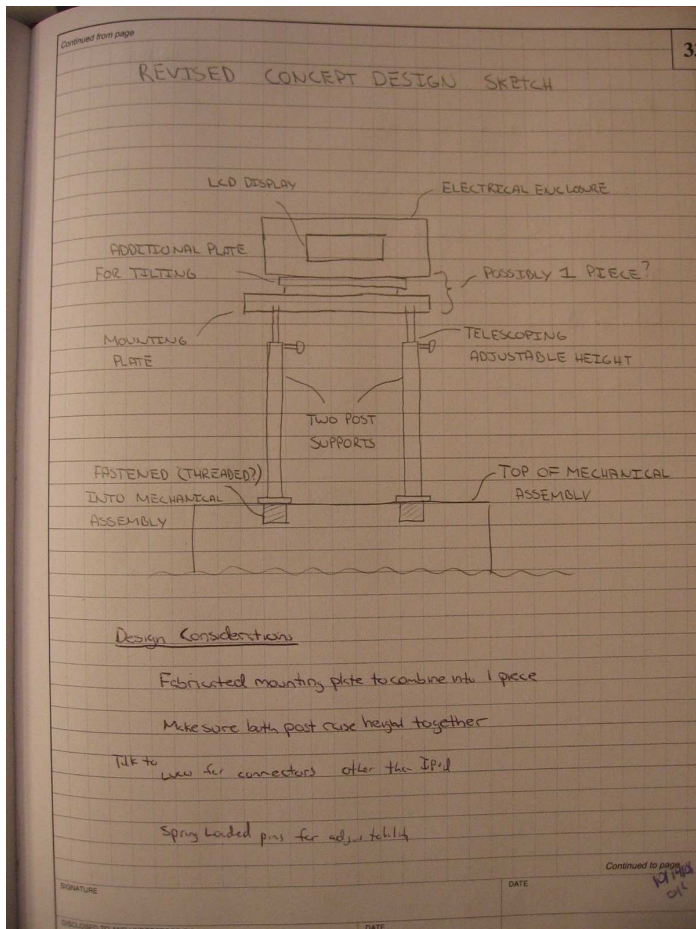 Continued from page
REVISED CONCEPT DESIGN SKETCH
LCD DISPLAY
ELECTRICAL ENCLOSURE
ADDITIONAL PLATE
FOR TILTING
POSSIBLY 1 PIECE?
MOUNTING
PLATE
TELESCOPING
ADJUSTABLE HEIGHT
TWO POST
SUPPORTS
FASTENED (THREADED?)
INTO MECHANICAL
ASSEMBLY
TOP OF MECHANICAL
ASSEMBLY
Design Considerations
Fabricated mounting plate to combine into 1 piece
Make sure both post raise height together
Talk to
for connectors other than
Spring Loaded pins for adjustability
Continued to page
SIGNATURE
DATE
DATE